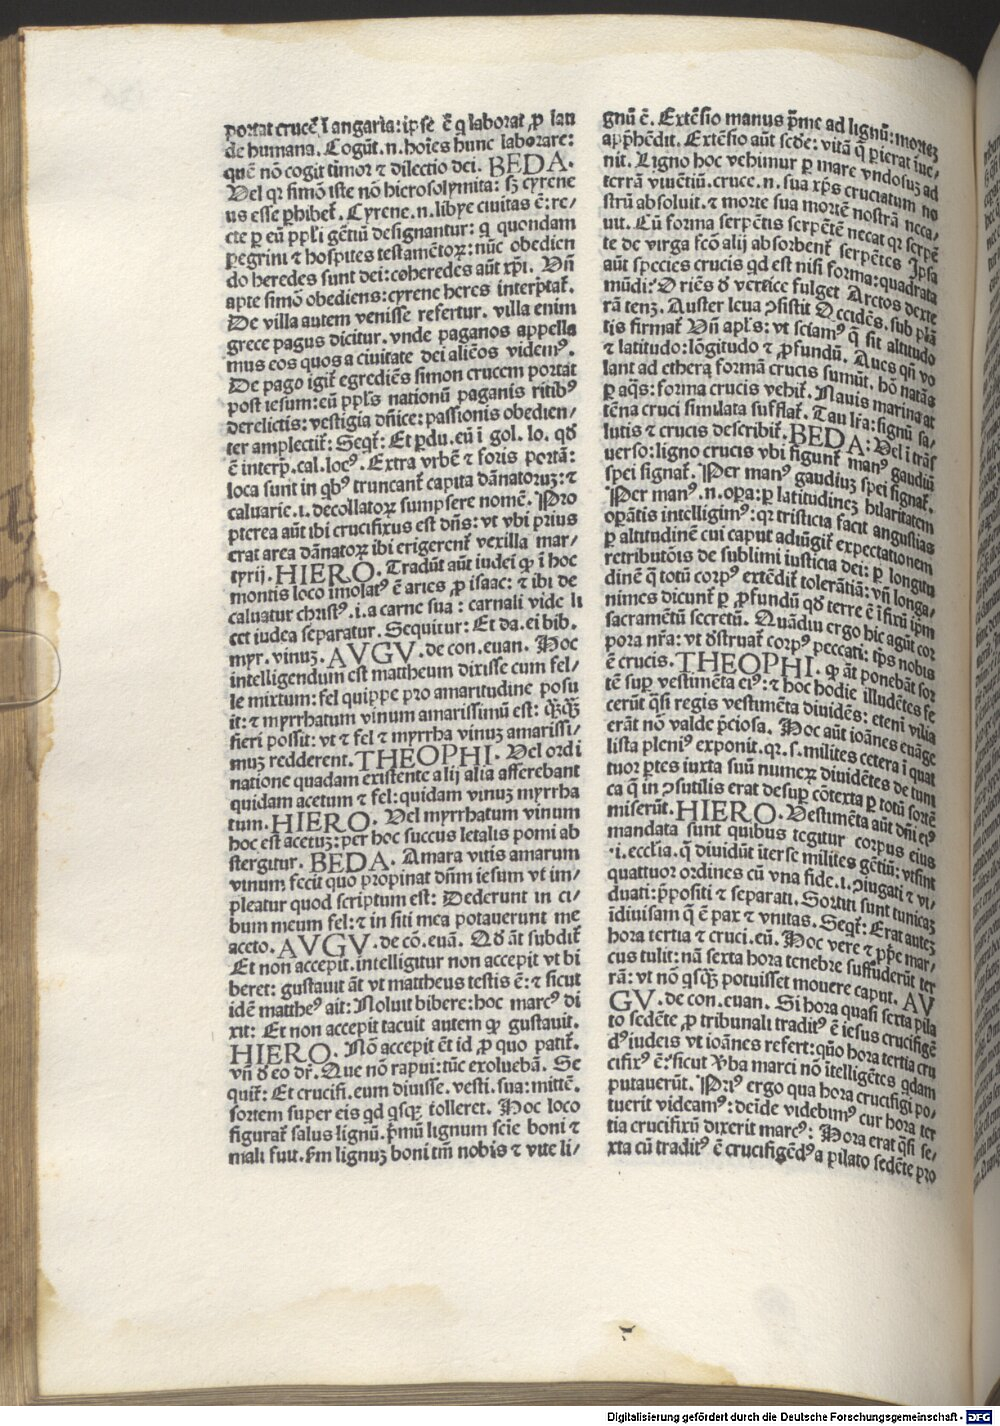 portat crucē ī angaria: ipse ē q̄ laborat ꝓ sati
de humana. Cogūt .n. hoīes hunc laborare:
quē nō cogit timor ⁊ dilectio dei. BEDA.
Vel qꝛ simō iste nō hierosolymita: sꝫ cyrene
us esse ꝑhibet᷑. Cyrene .n. libye ciuitas ē: re/
cte ꝑ eū ppl̄i gētiū designantur: q̄ quondam
ꝑegrini ⁊ hospites testamētoꝝ: nūc obedien
do heredes sunt dei: coheredes aūt xp̄i. Vn̄
apte simō obediens: cyrene heres interp̄tat᷑.
De villa autem venisse refertur. villa enim
grece pagus dicitur. vnde paganos appella
mus eos quos a ciuitate dei aliēos videmꝰ.
De pago igit᷑ egrediēs simon crucem portat
post iesum: cū ppl̄s nationū paganis ritibꝰ
derelictis: vestigia dn̄ice: passionis obedien/
ter amplectit᷑: Seqt᷑: Et ꝑdu. eū ī gol. lo. qd̄
ē interp̄. cal. locꝰ. Extra vrbē ⁊ foris portā:
loca sunt in qbꝰ truncant᷑ capita dānatoꝝ: ⁊
caluarie .i. decollatoꝝ sumpsere nomē. Pro
pterea aūt ibi crucifixus est dn̄s: vt vbi prius
erat area dānatoꝝ ibi erigerent᷑ vexilla mar/
tyrij. HIERO. Tradūt aūt iudei ꝙ ī hoc
montis loco imolatꝰ ē aries ꝓ isaac: ⁊ ibi de
caluatur christꝰ .i. a carne sua: carnali vide li
cet iudea separatur. Sequitur: Et da. ei bib.
myr. vinuꝫ. AVGV. de con. euan. Hoc
intelligendum est mattheum dixisse cum fel/
le mixtum: fel quippe pro amaritudine posu
it: ⁊ myrrhatum vinum amarissimū est: q̄ꝫq̄ꝫ
fieri possit: vt ⁊ fel ⁊ myrrha vinuꝫ amarissi/
muꝫ redderent. THEOPHI. Vel ordi
natione quadam existente alij alia afferebant
quidam acetum ⁊ fel: quidam vinuꝫ myrrha
tum. HIERO. Vel myrrhatum vinum
hoc est acetuꝫ: per hoc succus letalis pomi ab
stergitur. BEDA. Amara vitis amarum
vinum fecit quo propinat dn̄m iesum vt im/
pleatur quod scriptum est: Dederunt in ci/
bum meum fel: ⁊ in siti mea potauerunt me
aceto. AVGV. de cō. euā. Qd̄ āt subdit᷑
Et non accepit. intelligitur non accepit vt bi
beret: gustauit āt vt mattheus testis ē: ⁊ sicut
idē mattheꝰ ait: Noluit bibere: hoc marcꝰ di
xit: Et non accepit tacuit autem ꝙ gustauit.
HIERO. Nō accepit ēt id ꝓ quo patit᷑.
vn̄ đ eo dr̄. Que nō rapui: tūc exoluebā. Se
quit᷑: Et crucifi. eum diuisse. vesti. sua: mittē.
sortem super eis qd qsqꝫ tolleret. Hoc loco
figurat᷑ salus lignū. p̄mū lignum scie boni ⁊
mali fuit. ſm lignuꝫ boni tm̄ nobis ⁊ vite li/
gnū ē. Extēsio manus p̄me ad lignū: morteꝫ
app̄hēdit. Extēsio aūt scd̄e: vitā q̄ ꝑierat īue/
nit. Ligno hoc vehimur ꝑ mare vndosuꝫ ad
terrā viuētiū. cruce .n. sua xp̄s cruciatum no
strū absoluit. ⁊ morte sua mortē nostrā neca/
uit. Cū forma serpētis serpētē necat qꝛ serpē
te de virga fcō alij absorbent᷑ serpētes Ipsa
aūt species crucis qd est nisi forma: quadrata
mūdi: Oriēs đ vertice fulget Arctos dexte
rā tenꝫ. Auster leua ꝯsistit Occidēs. sub plā
tis firmat᷑ Vn̄ apl̄s: vt sciamꝰ q̄ sit altitudo
⁊ latitudo: lōgitudo ⁊ ꝓfundū. Aues qn̄ vo
lant ad etherā formā crucis sumūt. hō natās
ꝑ aqs: forma crucis vehit᷑. Nauis marina āt
tēna cruci similata sufflat᷑. Tau lr̄a: signū sa/
lutis ⁊ crucis describit᷑. BEDA: Vel ī trās
uerso: ligno crucis vbi figunt᷑ manꝰ gaudiū
spei signat᷑. Per manꝰ gaudiuꝫ spei signat᷑.
Per manꝰ .n. oꝑa: ꝑ latitudineꝫ hilaritatem
oꝑātis intelligimꝰ: qꝛ tristicia facit angustias
ꝑ altitudinē cui caput adiūgit᷑ expectationem
retributōis de sublimi iusticia dei: ꝑ longitu
dinē q̄ totū corpꝰ extēdit᷑ tolerātiā: vn̄ longa/
nimes dicunt᷑ ꝑ ꝓfundū qd̄ terre ē īfixū ip̄m
sacramētū secretū. Quādiu ergo hic agūt cor
pora nr̄a: vt đstruat᷑ corpꝰ peccati: tp̄s nobis
ē crucis. THEOPHI. ꝙ āt ponebāt sor
tē suꝑ vestimēta eiꝰ: ⁊ hoc hodie illudētes fe
cerūt qsi regis vestimēta diuidēs: etenī vilia
erāt nō valde p̄ciosa. Hoc aūt ioānes euāge
lista pleniꝰ exponit. qꝛ .s. milites cetera ī quat
tuor ꝑtes iuxta suū numeꝝ diuidētes de tuni
ca q̄ in ꝯsutilis erat desuꝑ cōtexta ꝑ totū sortē
miserūt. HIERO. Vestimēta aūt dn̄i eiꝰ
mandata sunt quibus tegitur corpus eius
.i. eccl̄ia. q̄ diuidūt īter se milites gētiū: vt sint
quattuor ordines cū vna fide .i. ꝯiugati ⁊ vi/
duati: p̄positi ⁊ separati. Sortiti sunt tunicaꝫ
īdiuisam q̄ ē pax ⁊ vnitas. Seqt᷑: Erat auteꝫ
hora tertia ⁊ cruci. eū. Hoc vere ⁊ pp̄e mar/
cus tulit: nā sexta hora tenebre suffuderūt ter
rā: vt nō qsqꝫ potuisset mouere caput. AV
GV. de con. euan. Si hora quasi sexta pila
to sedēte ꝓ tribunali traditꝰ ē iesus crucifigē
dꝰ iudeis vt ioānes refert: qūo hora tertia cru
cifixꝰ ē: sicut ꝟba marci nō ītelligētes qdam
putauerūt. Priꝰ ergo qua hora crucifigi po/
tuerit videamꝰ: deīde videbimꝰ cur hora ter
tia crucifixū dixerit marcꝰ: Hora erat qsi se/
xta cū traditꝰ ē crucifigēdꝰ a pilato sedēte pro
Digitalisierung gefördert durch die Deutsche Forschungsgemeinschaft - DFG